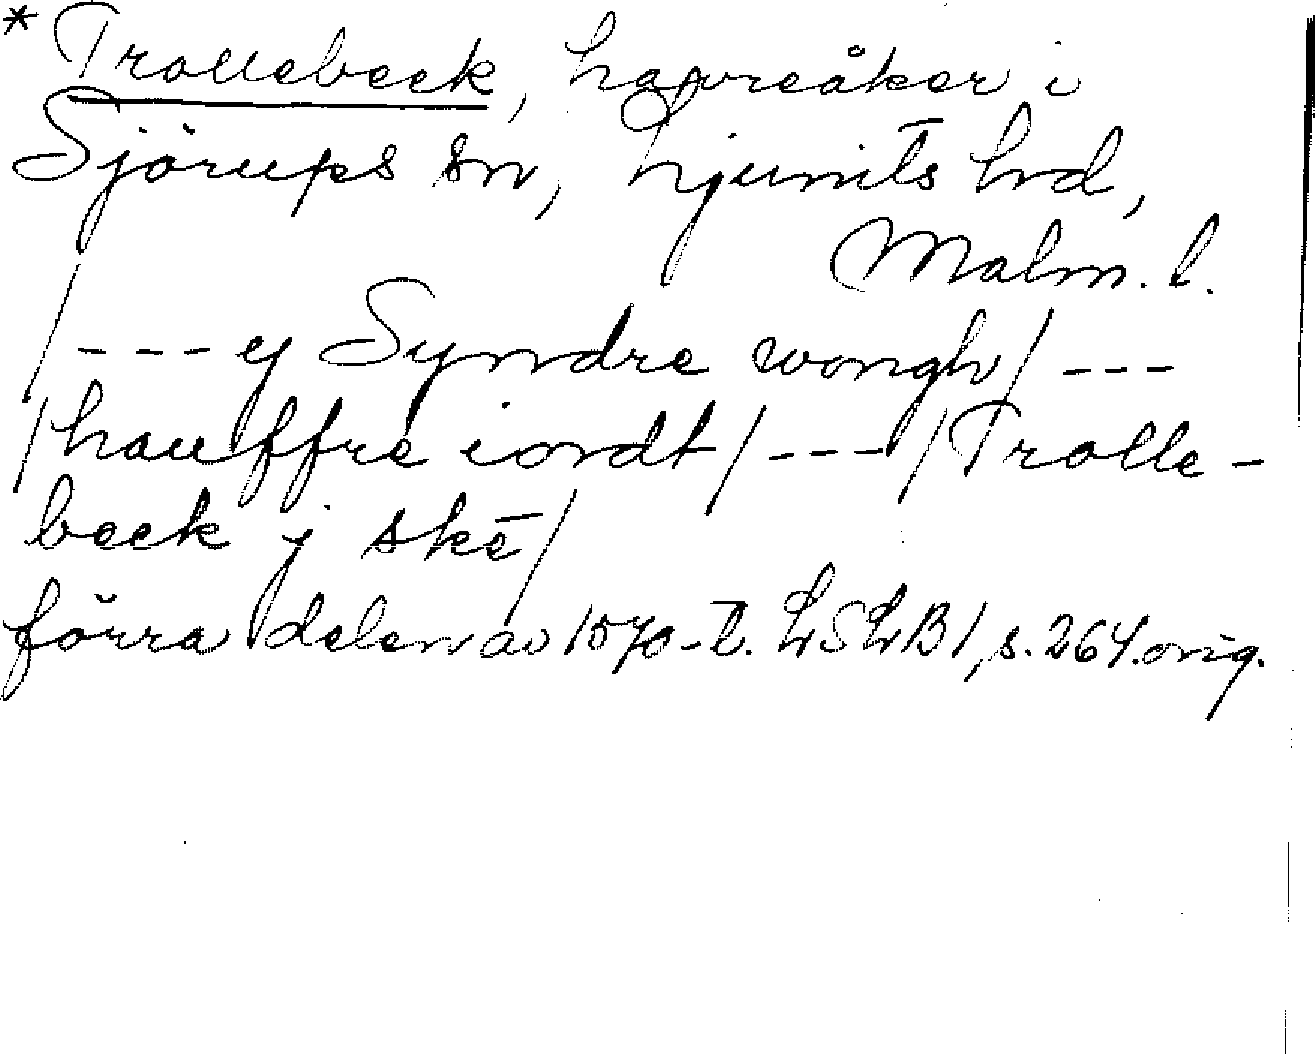 * Trollebeck, havreåker i
Sjörups sn, Ljunits hrd,
Malm. l.
/--- ej Syndre wongh/ ---
/hauffre iordt/ --- /Trolle-
beck j skē/
förra delen av 1570-t. LSLB1, s. 264. orig.